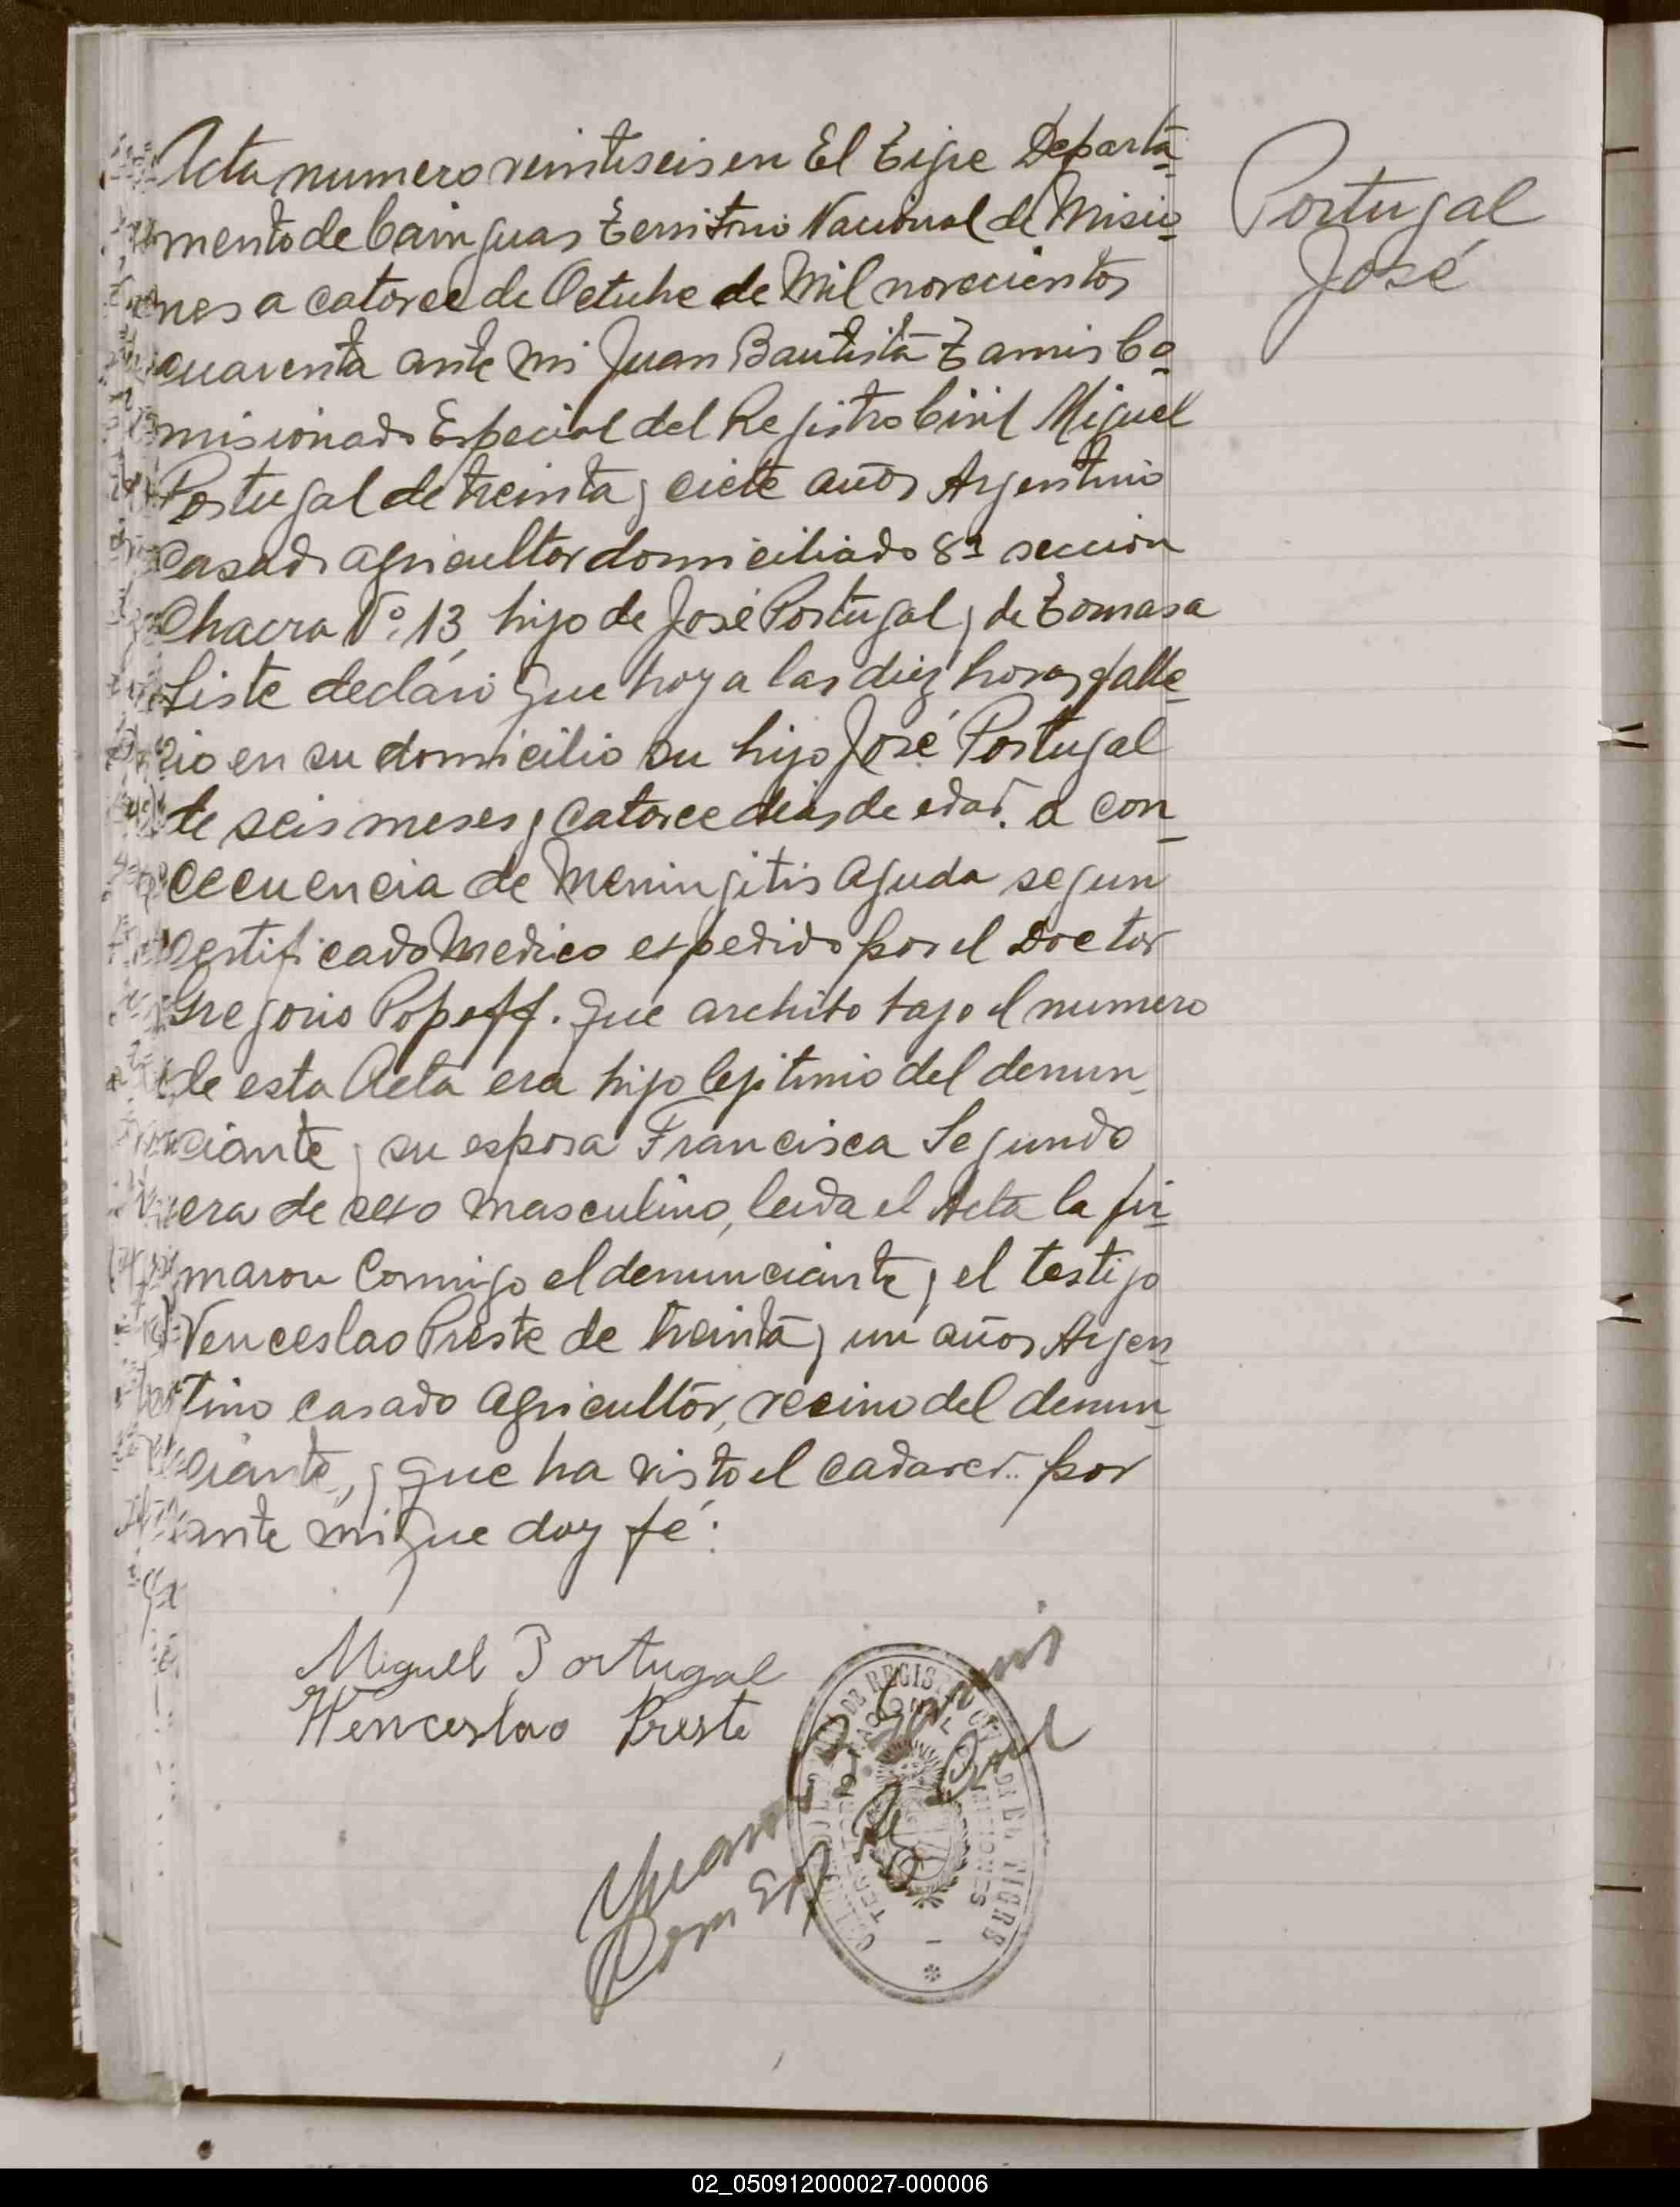 Acta numero veintiseis en El Tigre Departa-
mento de Cainguas Territorio Nacional de Misio-
nes a catorce de Octubre de Mil novecientos
cuarenta ante mi Juan Bautista Zamis Co-
misionado Especial del Registro Civil Miguel
Portugal de treinta y ciete años Argentino
Casado agricultor domiciliado 8ª seccion
Chacra Nº 13, hijo de José Portugal y de Tomasa
Liste declaró que hoy a las diez horas falle-
cio en su domicilio su hijo José Portugal
de seis meses y catorce dias de edad. a con-
cecuencia de Meningitis Aguda segun
certificado Medico expedido por el Doctor
Gregorio Popoff. que archibo bajo el numero
de esta Acta era hijo lejitimo del denun-
ciante y su esposa Francisca Segundo
era de sexo masculino, leida el Acta la fir-
maron Conmigo el denunciante y el testigo
Venceslao Preste de treinta y un años Argen-
tino casado Agricultor, vecino del denun-
ciante, y que ha visto el cadaver.. por
ante mi que doy fé:
Portugal
José
Miguel Portugal
Wenceslao Preste
Juan B Zamis
Com Esp de R Civil
REGISTRO CIVIL DE EL TIGRE
TERRITORIO NACIONAL DE MISIONES
02_050912000027-000006